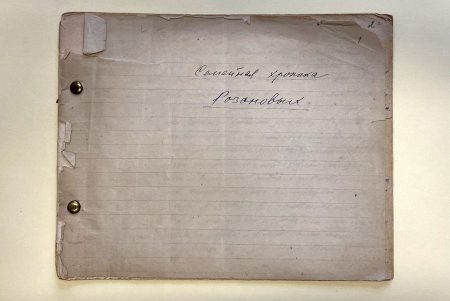 2
Семейная хроника
Розановых